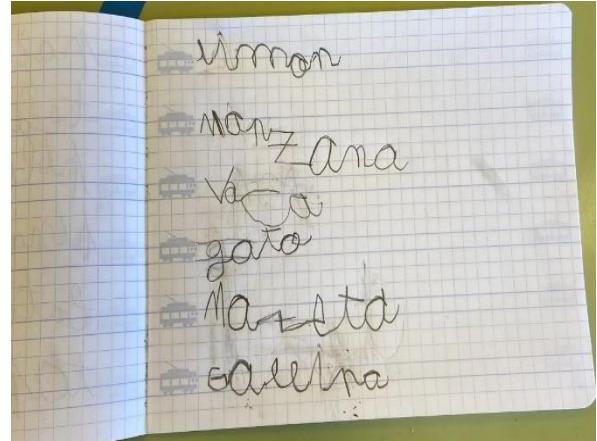 limon
manzana
vaca
gato
gallina